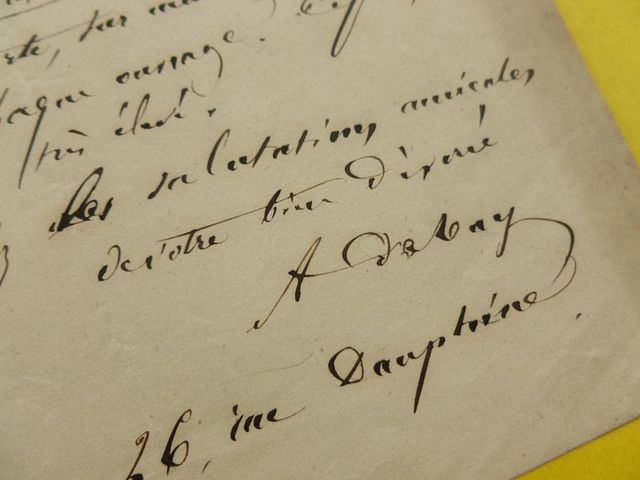 sur
chaque ouvrage.
très élevé.
Les salutations amicales
de votre bien dévoué
A Debay
26, rue Dauphine.